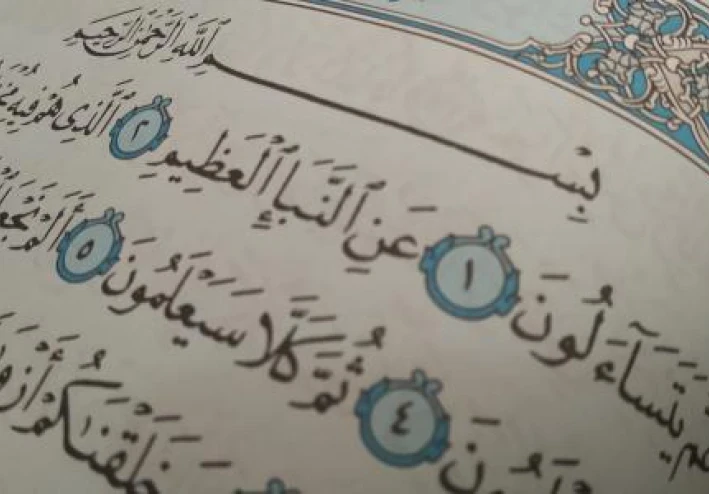 بِسْمِ ٱللَّهِ ٱلرَّحْمَٰنِ ٱلرَّحِيمِ
يَتَسَآءَلُونَ ١ عَنِ ٱلنَّبَإِ ٱلْعَظِيمِ ٢ ٱلَّذِي هُمْ فِيهِ
٤ ثُمَّ كَلَّا سَيَعْلَمُونَ ٥ أَلَمْ نَجْعَلِ
خَلَقْنَاكُمْ